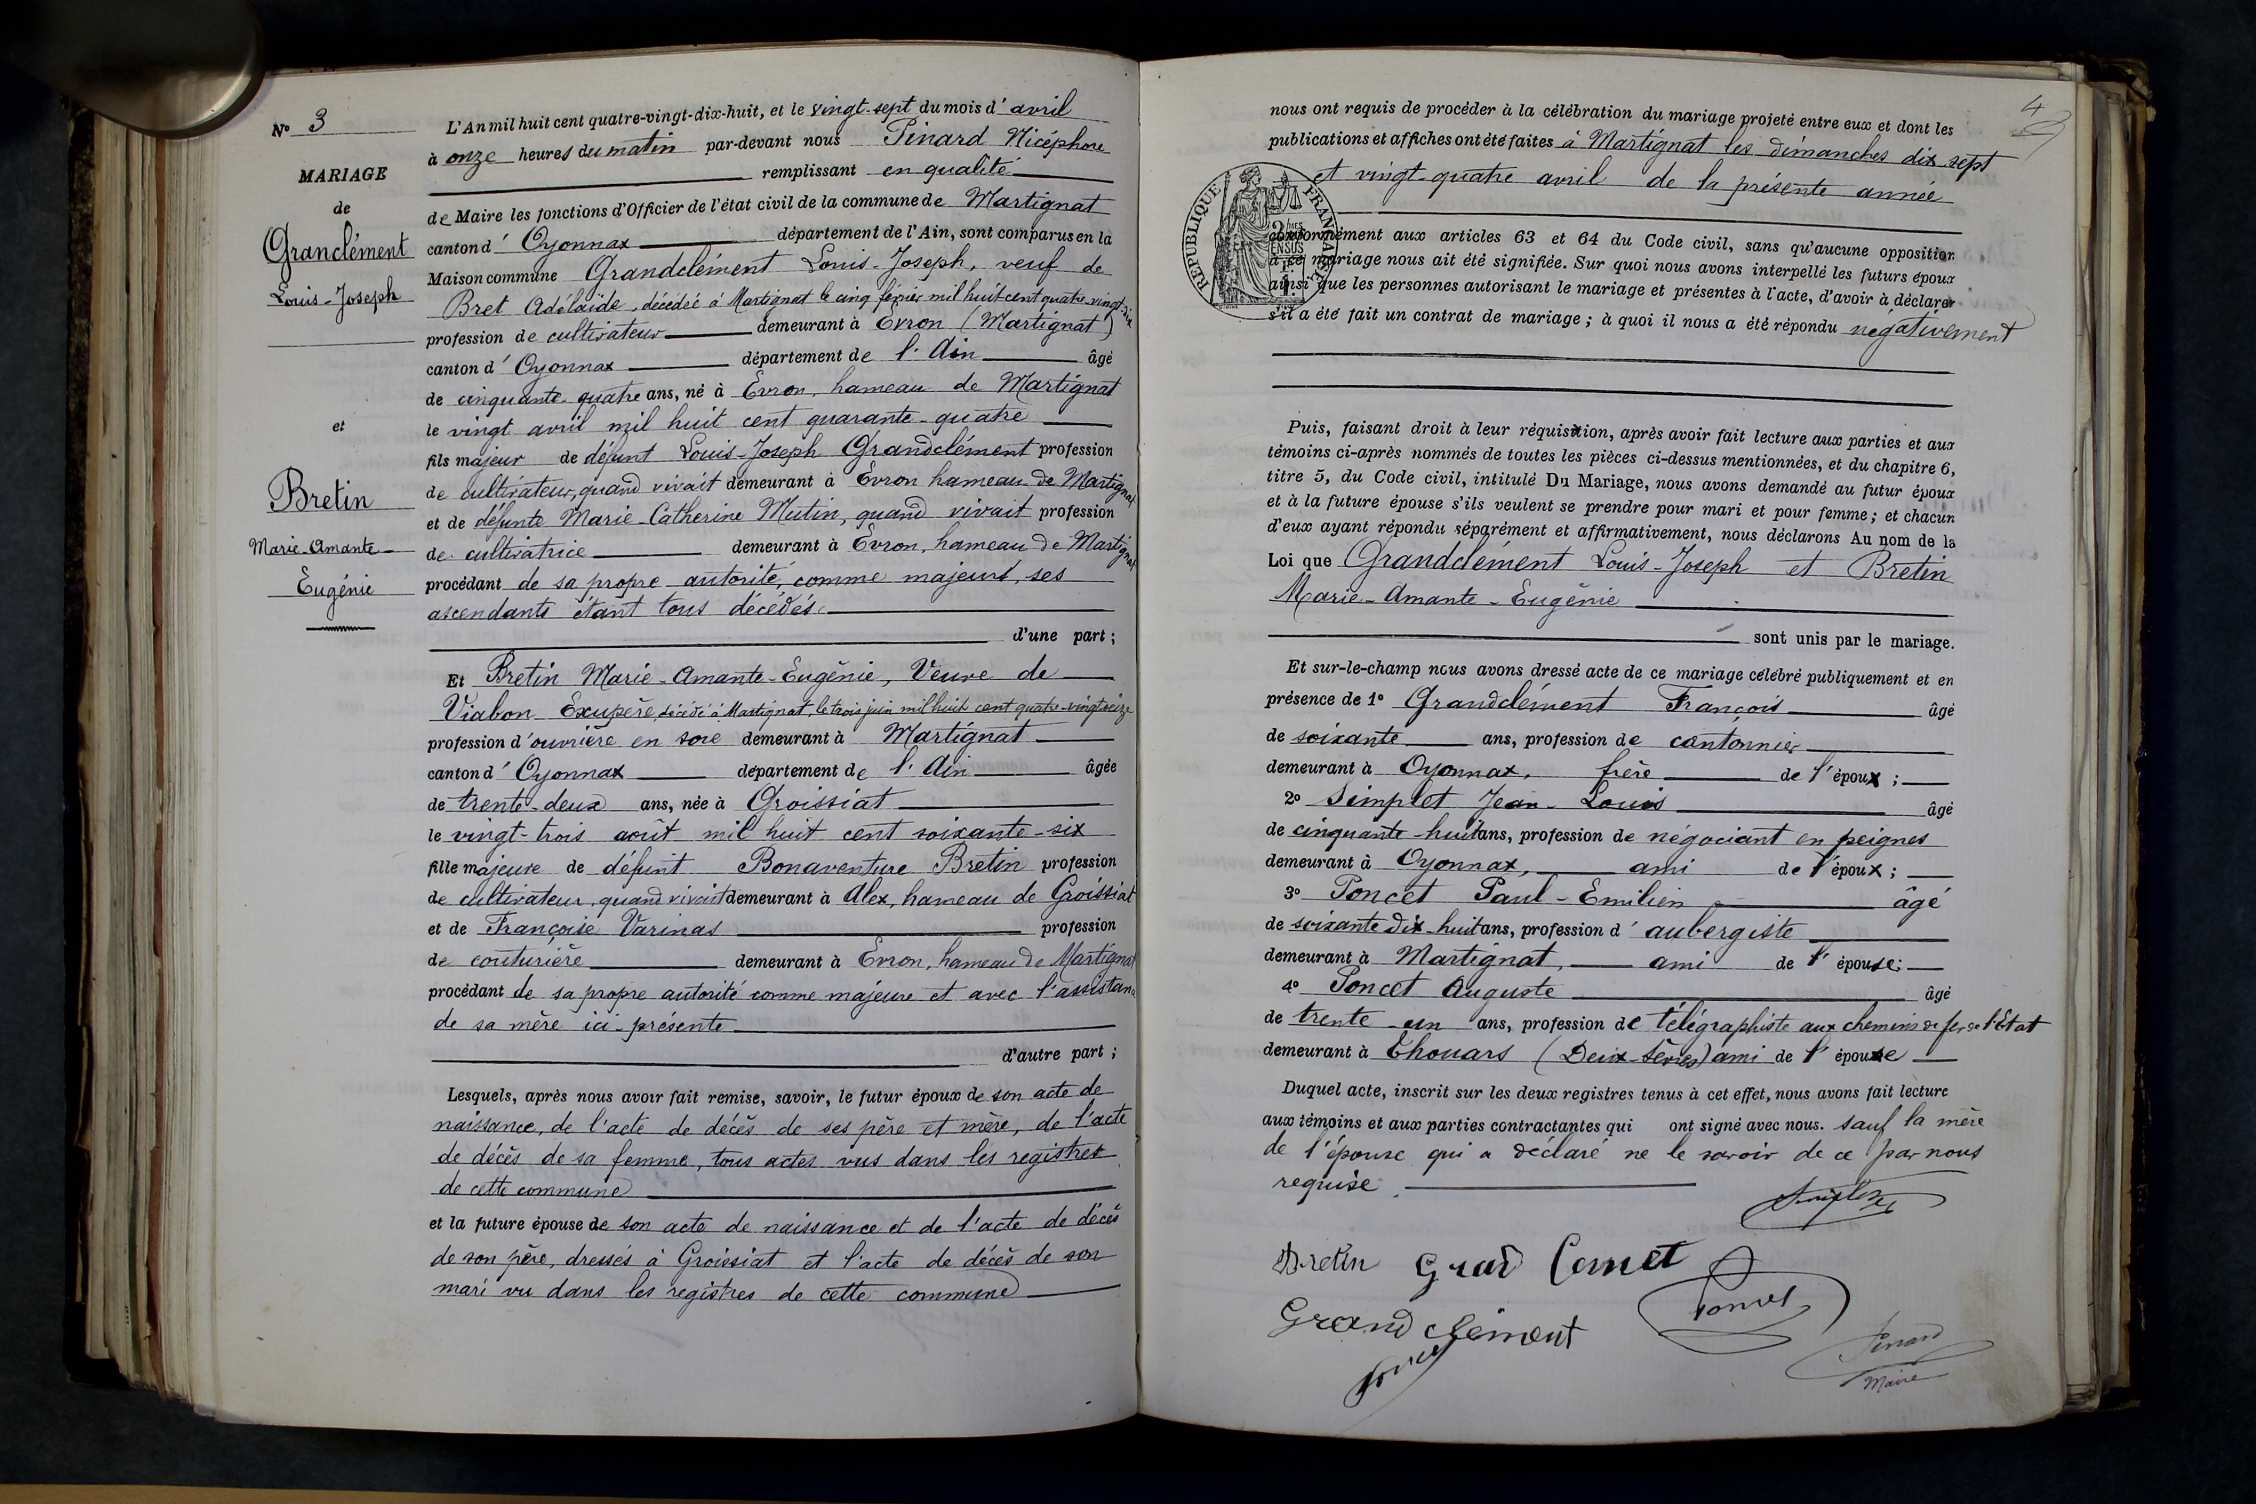 N° 3
MARIAGE
de
Granclément
Louis-Joseph
et
Bretin
Marie-Amante
Eugénie
L'An mil huit cent quatre-vingt-dix-huit, et le vingt-sept du mois d'avril
à onze heures du matin par-devant nous Pinard Nicéphore
remplissant en qualité
de Maire les fonctions d'Officier de l'état civil de la commune de Martignat
canton d'Oyonnax département de l'Ain, sont comparus en la
Maison commune Grandclément Louis-Joseph, veuf de
Bret Adélaïde, décédée à Martignat le cinq février mil huit cent quatre-vingt-dix
profession de cultivateur demeurant à Evron (Martignat)
canton d'Oyonnax département de l'Ain âgé
de cinquante-quatre ans, né à Evron, hameau de Martignat
le vingt avril mil huit cent quarante-quatre
fils majeur de défunt Louis-Joseph Grandclément profession
de cultivateur, quand vivait demeurant à Evron hameau de Martignat
et de défunte Marie-Catherine Mutin, quand vivait profession
de cultivatrice demeurant à Evron, hameau de Martignat
procédant de sa propre autorité, comme majeur, ses
ascendants étant tous décédés
d'une part;
Et Bretin Marie-Amante-Eugénie, Veuve de
Viabon Exupère, décédé à Martignat, le trois juin mil huit cent quatre-vingt-seize
profession d'ouvrière en soie demeurant à Martignat
canton d'Oyonnax département de l'Ain âgée
de trente-deux ans, née à Groissiat
le vingt-trois août mil huit cent soixante-six
fille majeure de défunt Bonaventure Bretin profession
de cultivateur, quand vivait demeurant à Alex, hameau de Groissiat
et de Françoise Varinas profession
de couturière demeurant à Evron, hameau de Martignat
procédant de sa propre autorité comme majeure et avec l'assistance
de sa mère ici-présente
d'autre part;
Lesquels, après nous avoir fait remise, savoir, le futur époux de son acte de
naissance, de l'acte de décès de ses père et mère, de l'acte
de décès de sa femme, tous actes vus dans les registres
de cette commune
et la future épouse de son acte de naissance et de l'acte de décès
de son père, dressés à Groissiat et l'acte de décès de son
mari vu dans les registres de cette commune
4
nous ont requis de procéder à la célébration du mariage projeté entre eux et dont les
publications et affiches ont été faites à Martignat les dimanches dix sept
et vingt-quatre avril de la présente année
REPUBLIQUE FRANÇAISE
conformément aux articles 63 et 64 du Code civil, sans qu'aucune opposition
à ce mariage nous ait été signifiée. Sur quoi nous avons interpellé les futurs époux
ainsi que les personnes autorisant le mariage et présentes à l'acte, d'avoir à déclarer
s'il a été fait un contrat de mariage; à quoi il nous a été répondu négativement
Puis, faisant droit à leur réquisition, après avoir fait lecture aux parties et aux
témoins ci-après nommés de toutes les pièces ci-dessus mentionnées, et du chapitre 6,
titre 5, du Code civil, intitulé Du Mariage, nous avons demandé au futur époux
et à la future épouse s'ils veulent se prendre pour mari et pour femme; et chacun
d'eux ayant répondu séparément et affirmativement, nous déclarons Au nom de la
Loi que Grandclément Louis-Joseph et Bretin
Marie-Amante-Eugénie
sont unis par le mariage.
Et sur-le-champ nous avons dressé acte de ce mariage célébré publiquement et en
présence de 1° Grandclément François âgé
de soixante ans, profession de cantonnier
demeurant à Oyonnax, frère de l'époux;
2° Simplet Jean-Louis âgé
de cinquante-huit ans, profession de négociant en peignes
demeurant à Oyonnax, ami de l'époux;
3° Poncet Paul-Emilien âgé
de soixante dix-huit ans, profession d'aubergiste
demeurant à Martignat, ami de l'épouse;
4° Poncet Auguste âgé
de trente-un ans, profession de télégraphiste aux chemins de fer de l'Etat
demeurant à Thouars (Deux-Sèvres) ami de l'épouse
Duquel acte, inscrit sur les deux registres tenus à cet effet, nous avons fait lecture
aux témoins et aux parties contractantes qui ont signé avec nous. sauf la mère
de l'épouse qui a déclaré ne le savoir de ce par nous
requise.
Simplet
Bretin Grand Clemet
Poncet
Grand clément
Poncet
Pinard
Maire